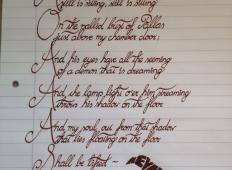 still is sitting, still is sitting
On the pallid bust of Pallas
just above my chamber door;
And his eyes have all the seeming
of a demon that is dreaming
And the lamp light o'er him streaming
throws his shadow on the floor
And my soul out from that shadow
that lies floating on the floor
Shall be lifted ~